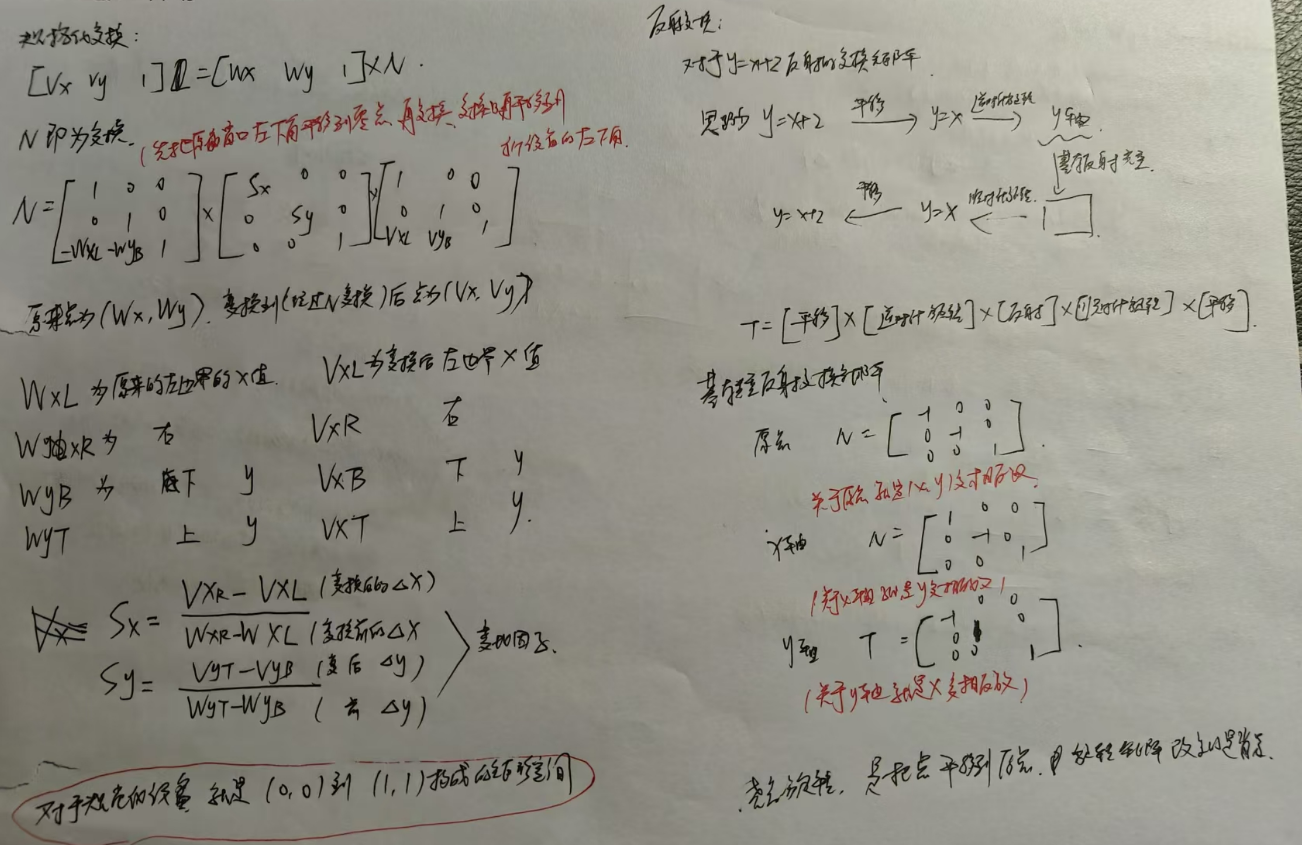 规格化变换:
[Vx Vy 1] = [Wx Wy 1]×N.
N即为变换.
(先把原窗口左下角平移到零点,再变换,变换后再平移到
新设备的左下角.
N = [1 0 0
0 1 0
-WXL -WyB 1] × [Sx 0 0
0 Sy 0
0 0 1] × [1 0 0
0 1 0
VXL VyB 1]
原来点为(Wx,Wy).变换到(经过N变换)后点为(Vx,Vy)
WxL为原来的左边界的X值. VXL为变换后左边界X值
WXR为 右 VXR 右
WyB为 下 y VXB 下 y
WyT 上 y VXT 上 y.
Sx = (VXR - VXL)/(WXR - WXL) (变换后的ΔX) (变换前的ΔX
Sy = (VyT - VyB)/(WyT - WyB) (变后 Δy) (去 Δy)
变比因子.
对于规范的设备 就是 (0,0)到 (1,1)构成的矩形空间
反射变换:
对于y=x+2反射的变换矩阵.
思路 y=x+2 平移→ y=x 逆时针旋转→ y轴
基本反射变
y=x+2 ←平移 y=x ←顺时针旋转
T=[平移]×[逆时针旋转]×[反射]×[顺时针旋转]×[平移].
基本反射变换矩阵
原点 N = [-1 0 0
0 -1 0
0 0 1].
关于原点 就是(x,y)变相反数
x轴 N = [1 0 0
0 -1 0
0 0 1]
(关于x轴 就是y变相反数)
y轴 T = [-1 0 0
0 1 0
0 0 1].
(关于y轴就是X变相反数)
绕点旋转, 是把点平移到原点,